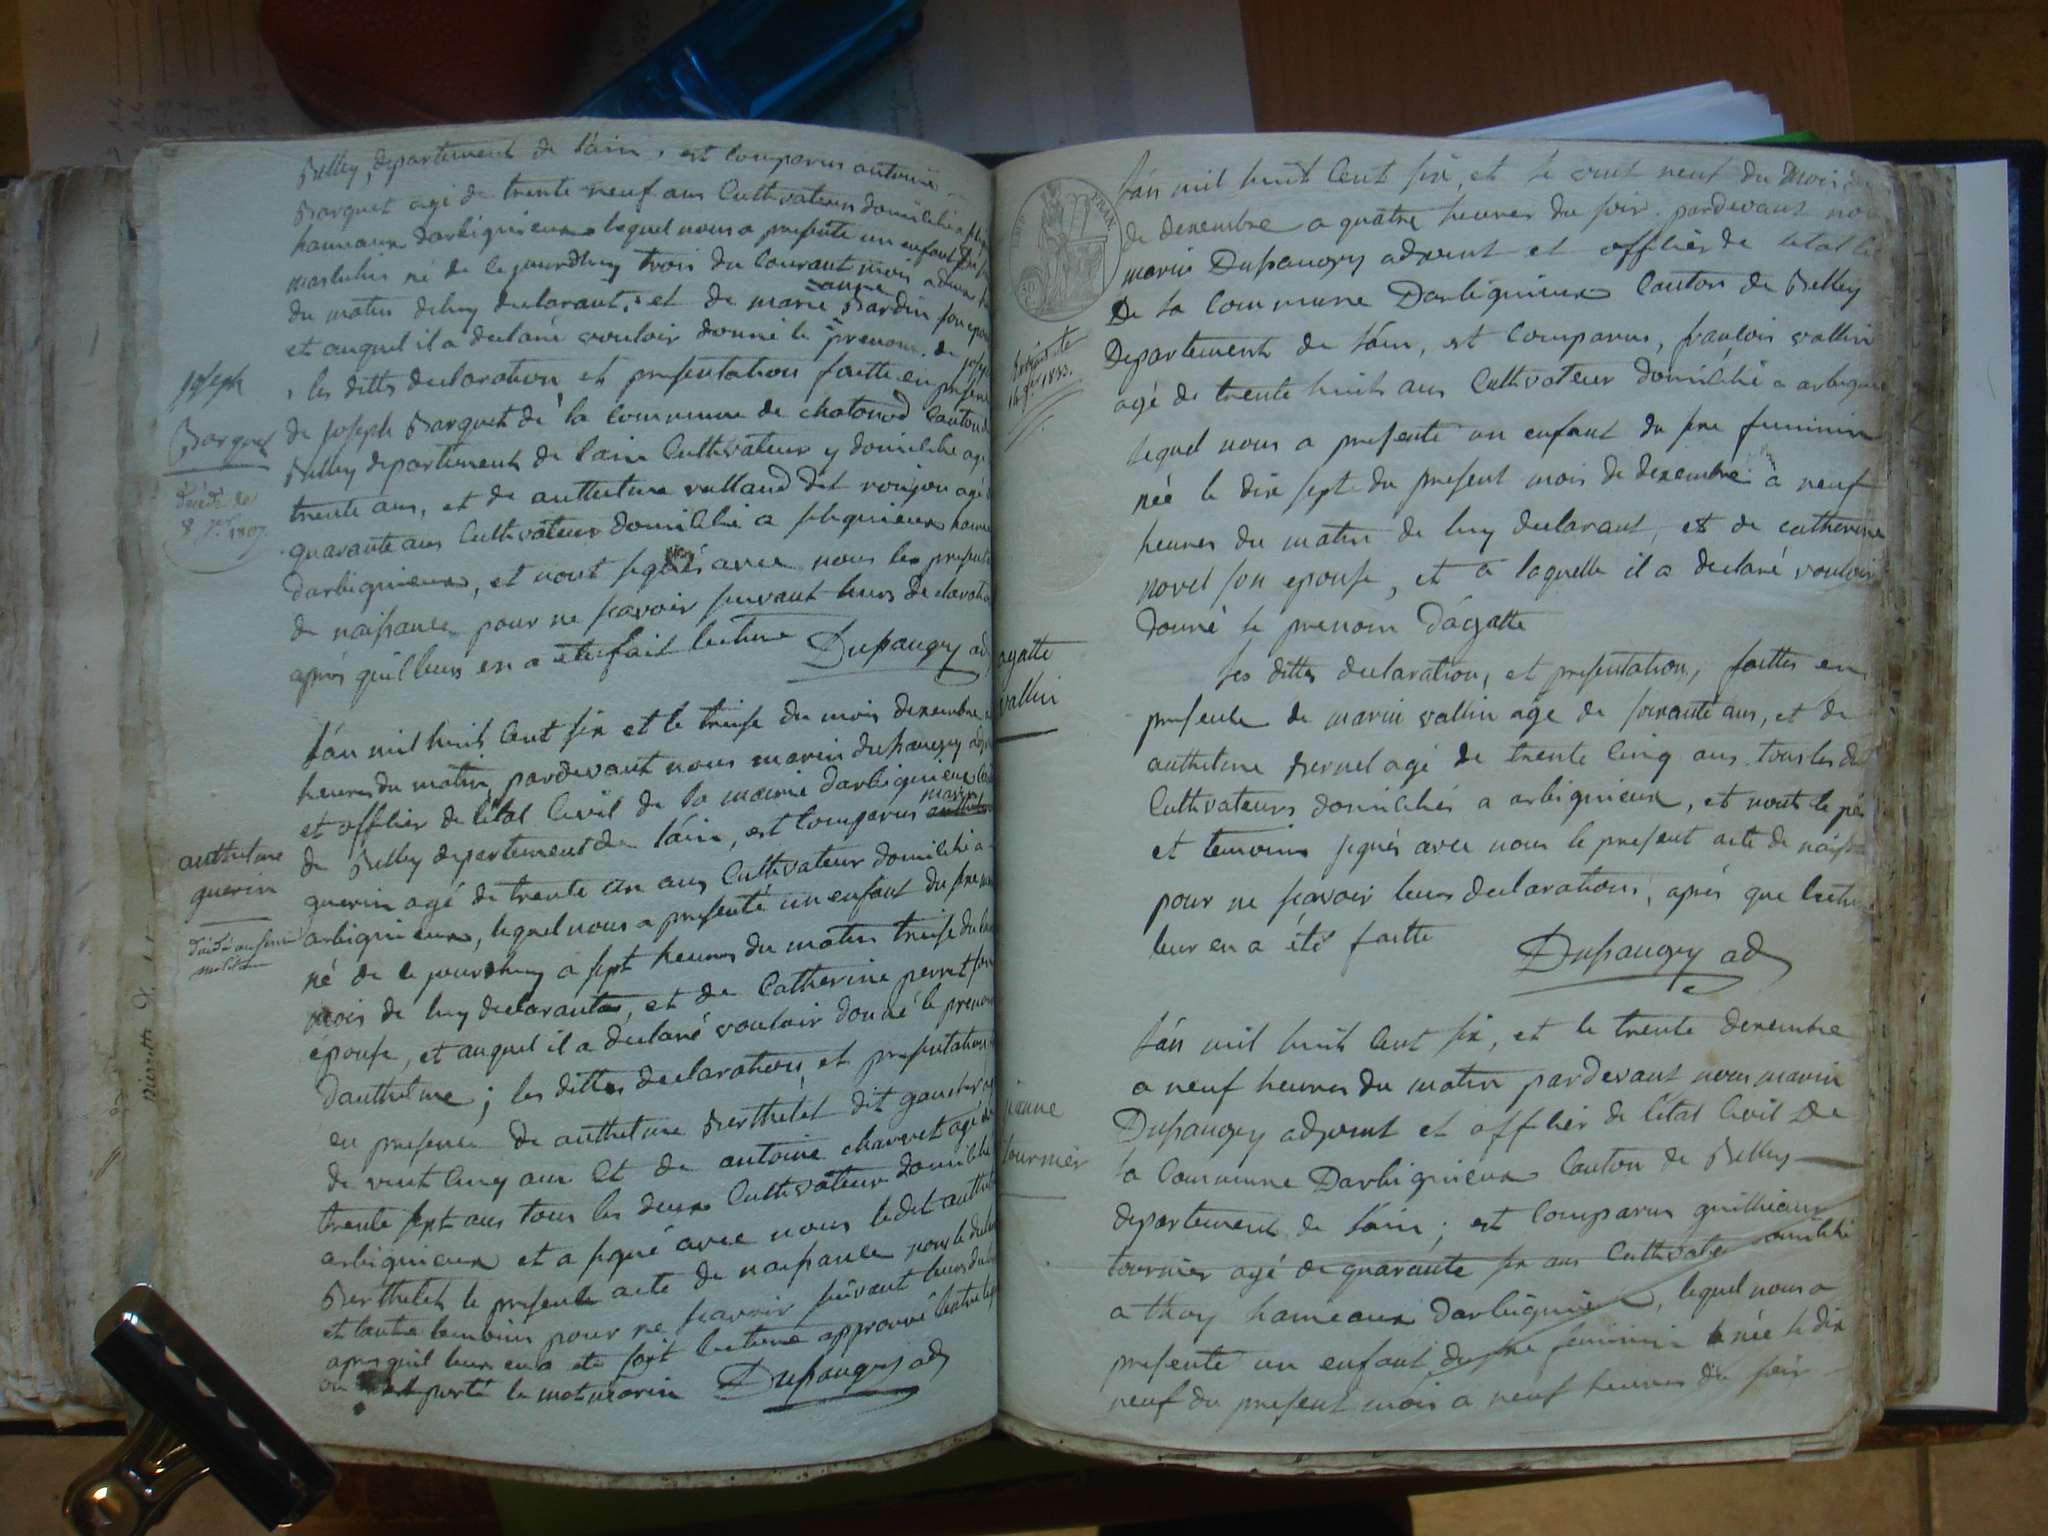 Belley, departement de l'ain, est comparus antoine
Barquet agé de trente neuf ans Cultivateur domicilié a
hameaux darbignieux lequel nous a presenté un enfant du
masculin né de ce jourdhuy trois du Courant mois a
du matin de luy declarant, et de marie anne Bardin son epouse
et auquel il a declaré vouloir donné le prenom de joseph
les dittes declaration et presentation faitte en presence
joseph
Barquet
décédé le
8 1807.
de joseph Barquet de la Commune de chatonod Canton de
Belley departement de l'ain Cultivateur y domicilié agé
trente ans, et de anthelme vallaud dit agé
quarante ans Cultivateur domicilié a hameaux
darbignieux, et nont signés avec nous les presents
de naissance pour ne scavoir suivant leurs declaration
après quil leurs en a eté fait lecture Dupaugey ad
l'an mil huit Cent six et le treise du mois dexembre
heures du matin, pardevant nous marin dupaugey adjoint
et offlier de létat Civil de la mairie darbignieux
de Belley departement de l'ain, est Comparus marin
anthelme
guerin
décédé au service
militaire
guerin agé de trente un ans Cultivateur domicilié a
arbignieux, lequel nous a presenté un enfant du sexe
né de ce jourdhuy a sept heures du matin treise du
mois de luy declarant, et de Catherine perret son
épouse, et auquel il a declaré vouloir donné le prenom
danthelme; les dittes declaration, et presentation
en presence de anthelme Berthelet dit
de vint cinq ans et de antoine charvet agé de
trente sept ans tous les deux Cultivateur domicilié
arbignieux et a signé avec nous ledit anthelme
Berthelet le present acte de naissance
et lautre temoins pour ne scavoir suivant leurs
après quil leurs en a eté fait lecture approuvé
porté le mot marin Dupaugey ad
l'an mil huit Cent six, et le vint neuf du mois de
de dexembre a quatre heures du soir pardevant nous
marin Dupaugey adjoint et offlier de létat
De la Commune Darbignieux Canton de Belley
Departement de l'ain, est Comparus, françois vallin
agé de trente huit ans Cultivateur domicilié a arbignieux
lequel nous a presenté un enfant du sexe feminin
née le dix sept du present mois de dexembre a neuf
heures du matin de luy declarant, et de catherine
novel son epouse, et a laquelle il a declaré vouloir
donné le prenom d'agatte
agatte
vallin
les dittes declaration, et presentation, faittes en
presence de marin vallin agé de soixante ans, et de
anthelme Bernel agé de trente Cinq ans tous les deux
Cultivateurs domiciliés a arbignieux, et nont le père
et temoins signés avec nous le present acte de naissance
pour ne scavoir leurs declarations, après que lecture
leur en a été faitte
Dupaugey ad
l'an mil huit Cent six, et le trente dexembre
a neuf heures du matin pardevant nous marin
jeanne
tournier
Dupaugey adjoint et offlier de létat Civil De
la Commune Darbignieux Canton de Belley
departement de l'ain; est Comparus guilliaume
tournier agé de quarante six ans Cultivate domicilié
a thoy hameaux Darbignieux, lequel nous a
presenté un enfant du sexe feminin née le dix
neuf du present mois a neuf heures du soir